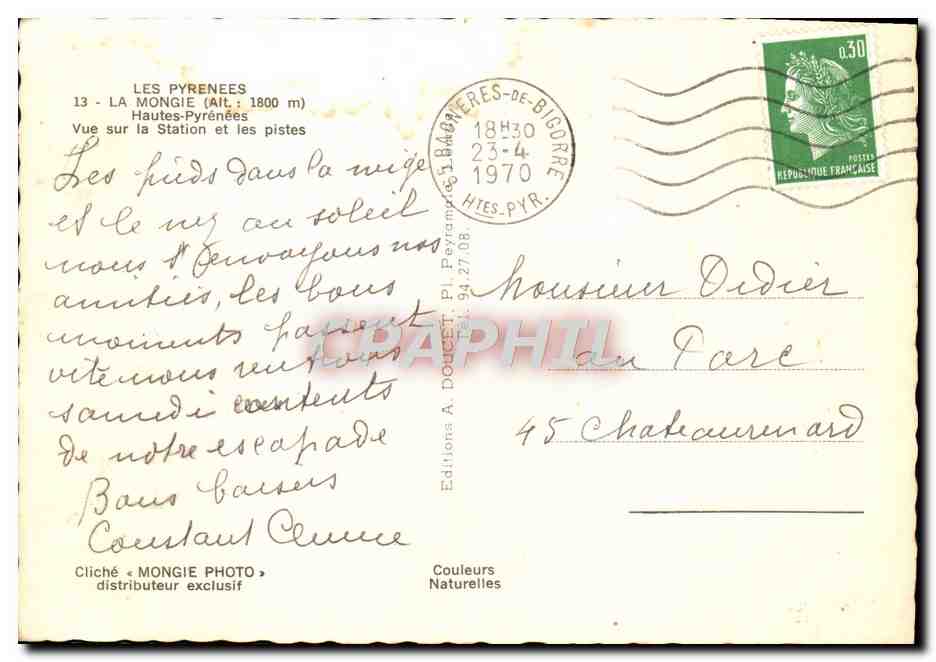 LES PYRENEES
13 - LA MONGIE (Alt. : 1800 m)
Hautes-Pyrénées
Vue sur la Station et les pistes
Les pieds dans la neige
et le nez au soleil
nous envoyons nos
amitiés, les bons
moments passent
vite nous rentrons
samedi contents
de notre escapade
Bons baisers
Constant
Cliché « MONGIE PHOTO »
distributeur exclusif
Couleurs
Naturelles
Editions A. DOUCET, Pl. Peyramale, Lourdes
Tél. 94.27.08.
65 BAGNERES-DE-BIGORRE
18H30
23-4
1970
HTES-PYR.
0,30
POSTES
REPUBLIQUE FRANÇAISE
Monsieur Didier
au Parc
45 Chateaurenard
CPAPHIL